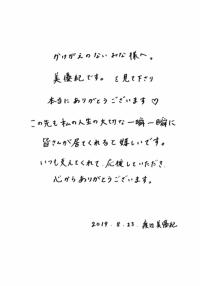 かけがえのないみな様へ。
美優紀です。 を見て下さり
本当にありがとうございます♡
この先も私の人生の大切な一瞬一瞬に
皆さんが居てくれると嬉しいです。
いつも支えてくれて、応援していただき、
心からありがとうございます。
2019.8.23. 渡辺美優紀